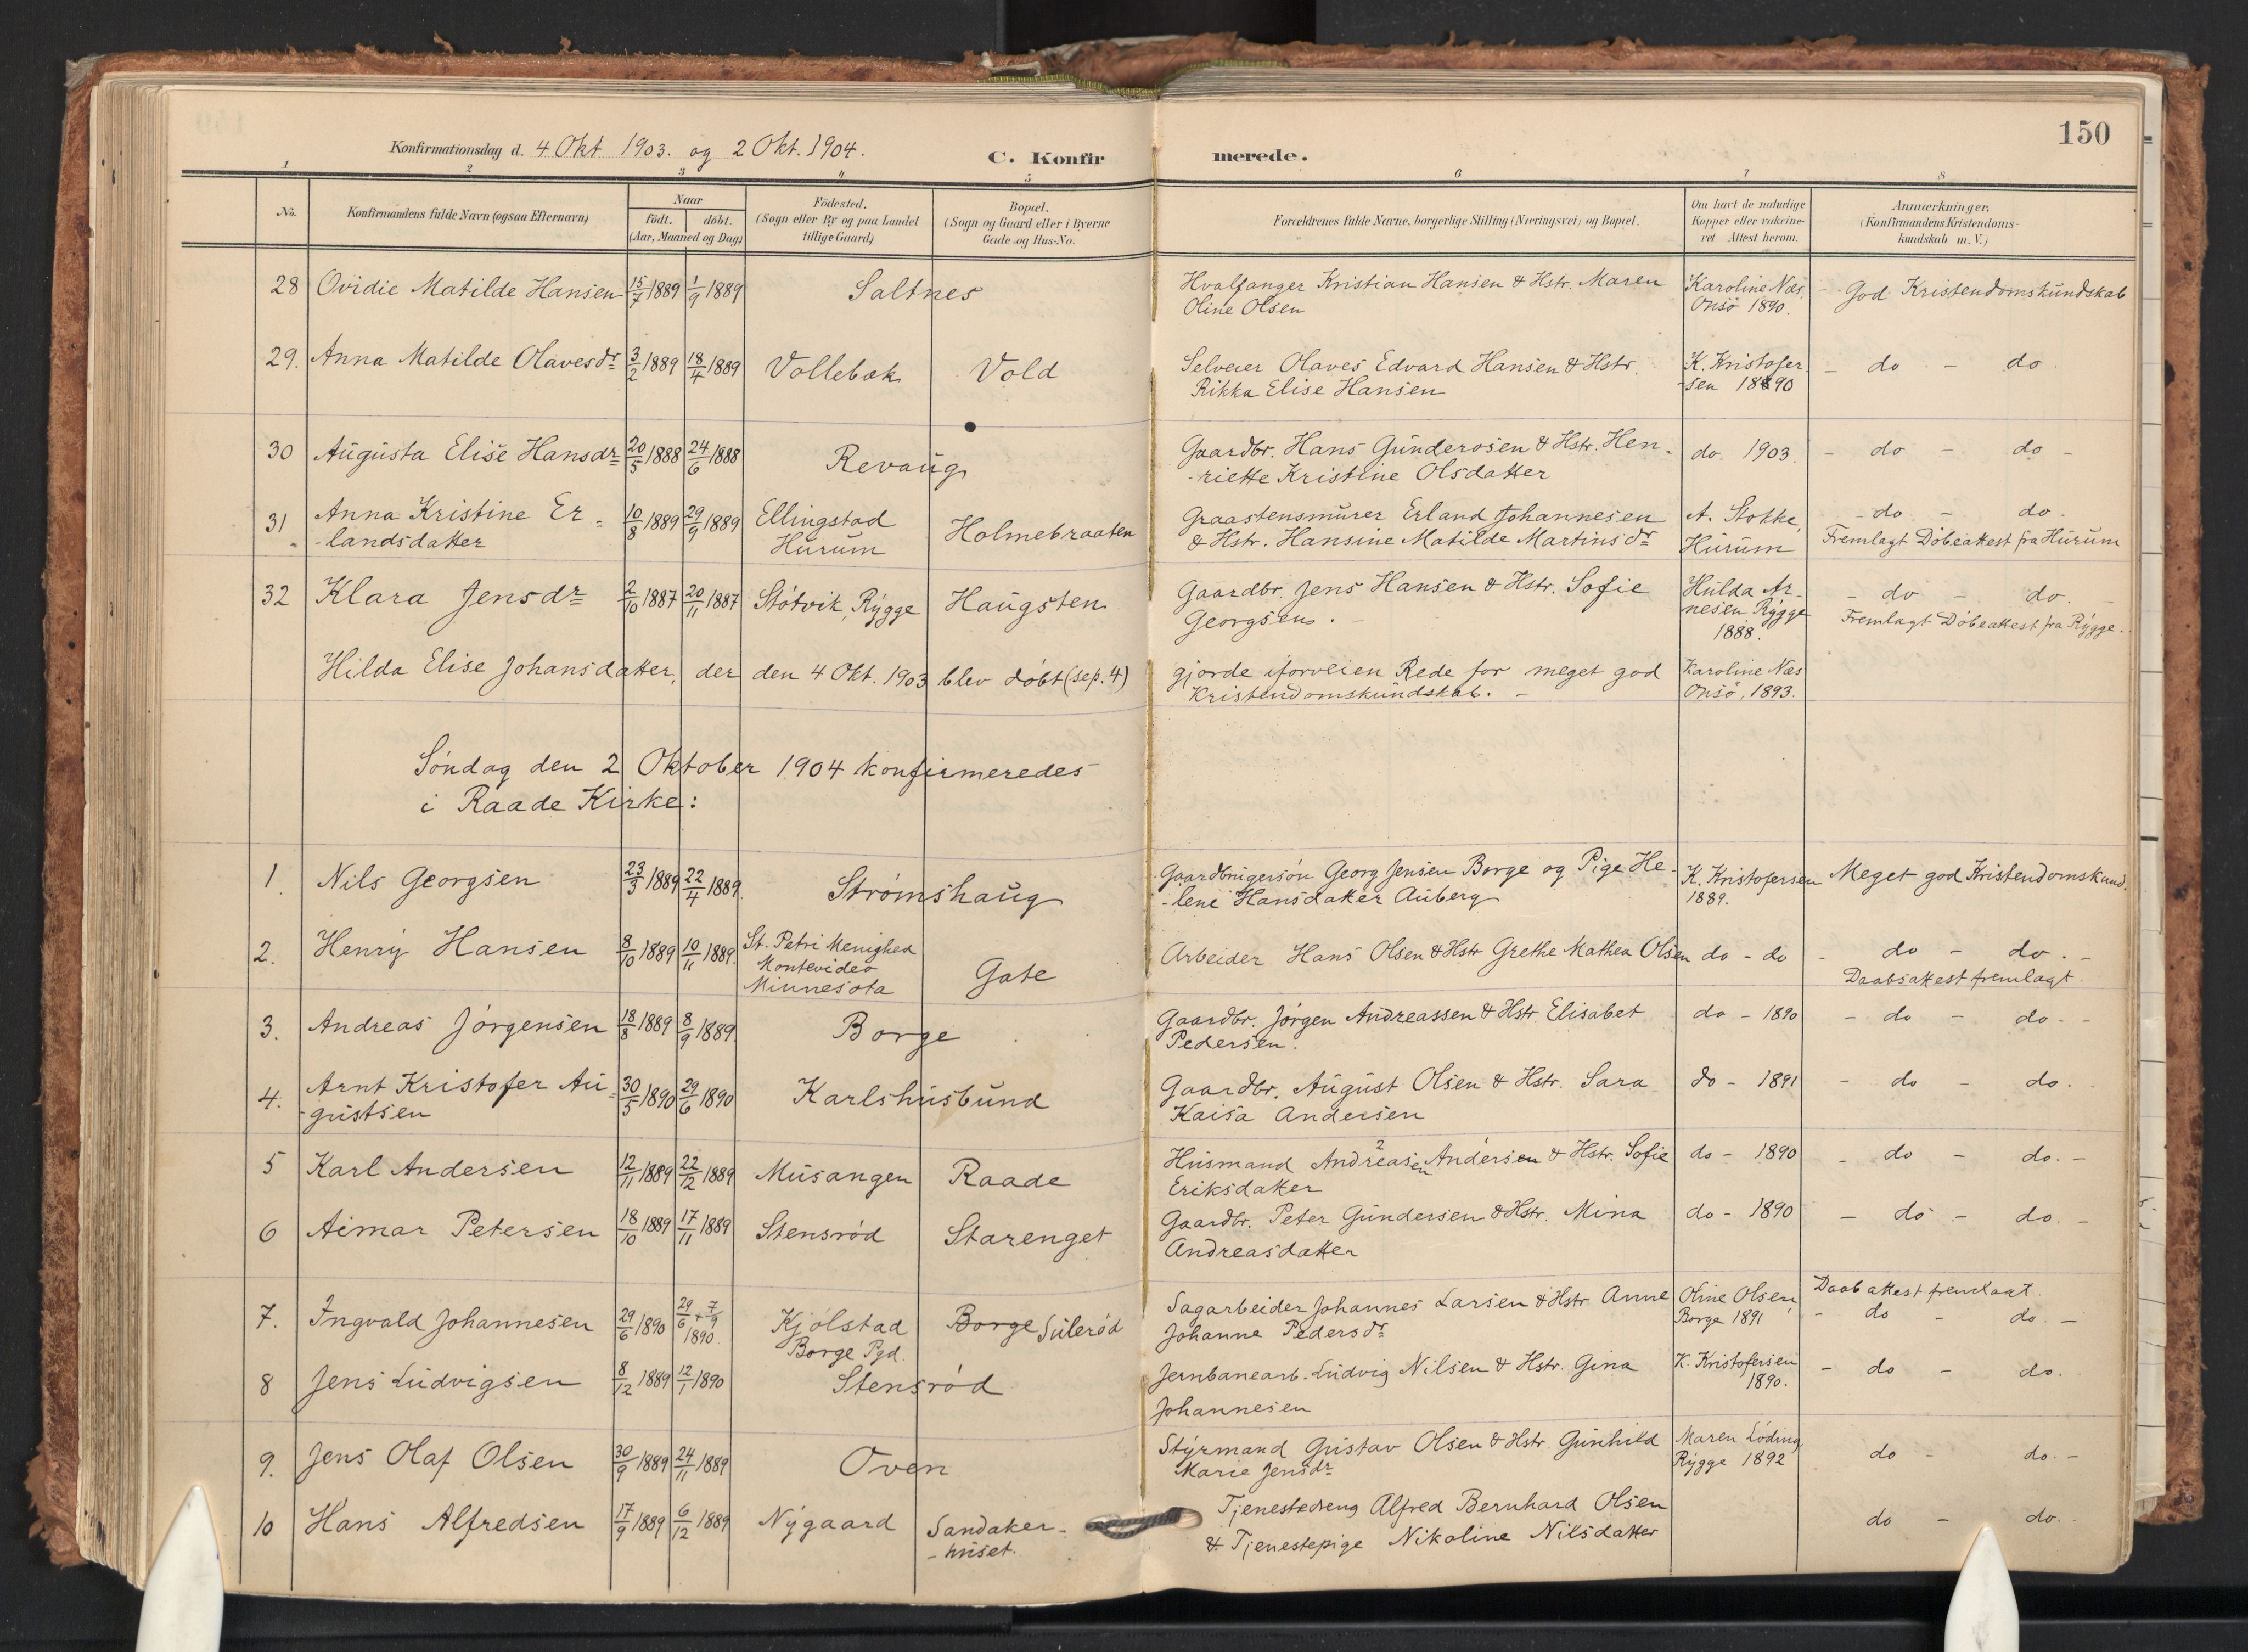 150
Konfirmationsdag d. 4 Okt 1903. og 2 Okt. 1904.
C. Konfirmerede.
1 2 3 4 5 6 7 8
No. Konfirmandens fulde Navn (ogsaa Efternavn) Naar födt. döbt. (Aar, Maaned og Dag) Födested. (Sogn eller By og paa Landet tillige Gaard) Bopæl. (Sogn og Gaard eller i Byerne Gade og Hus-No. Forældrenes fulde Navne, borgerlige Stilling (Næringsvei) og Bopæl. Om havt de naturlige Kopper eller vakcineret Attest herom. Anmærkninger. (Konfirmandens Kristendomskundskab m. V.)
28 Ovidie Matilde Hansen 15/7 1889 1/9 1889 Saltnes Hvalfanger Kristian Hansen & Hstr. Maren Karoline Næs, God Kristendomskundskab
Oline Olsen Onsö 1890.
29. Anna Matilde Olavesdr 3/2 1889 18/4 1889 Vollebæk Vold Selveier Olaves Edvard Hansen & Hstr. K. Kristofer - do - do
Rikka Elise Hansen -sen 1890
30 Augusta Elise Hansdr 20/5 1888 24/6 1888 Revaug Gaardbr. Hans Gunderosen & Hstr. Hen- do. 1903. - do - do -
-riette Kristine Olsdatter
31 Anna Kristine Er- 10/8 1889 29/9 1889 Ellingstad Holmebraaten Graastensmurer Erland Johannesen A. Stokke, - do - do.
-landsdatter Hurum & Hstr. Hansine Matilde Martinsdr Hurum Fremlagt Döbeattest fra Hurum
32 Klara Jensdr 2/10 1887 20/11 1887 Støtvik, Rygge Haugsten Gaardbr. Jens Hansen & Hstr. Sofie Hulda Ar- - do - do. -
Georgsen. nesen Rygge Fremlagt Döbeattest fra Rygge.
1888.
Hilda Elise Johansdatter, der den 4 Okt. 1903 blev döbt (sep. 4) gjorde iforveien Rede for meget god Karoline Næs
Kristendomskundskab. - Onsö, 1893.
Söndag den 2 Oktober 1904 konfirmeredes
i Raade Kirke:
1 Nils Georgsen 23/3 1889 22/4 1889. Strömshaug Gaardbrugersön Georg Jensen Borge og Pige He- K. Kristofersen Meget god Kristendomskund.
-lene Hansdatter Auberg 1889.
2. Henry Hansen 8/10 1889 10/11 1889. St. Petri Menighed Gate Arbeider Hans Olsen & Hstr Grethe Mathea Olsen do - do - do - do. -
Montevideo Daabsattest fremlagt.
Minnesota
3. Andreas Jörgensen 18/8 1889 8/9 1889. Borge Gaardbr. Jörgen Andreassen & Hstr. Elisabet do - 1890 - do - do - -
Pedersen.
4. Arnt Kristofer Au- 30/5 1890 29/6 1890 Karlshusbund Gaardbr. August Olsen & Hstr. Sara do - 1891 - do - do. -
-gustsen Kaisa Andersen
5 Karl Andersen 12/11 1889 22/12 1889 Musangen Raade Husmand Andreasen Andersen & Hstr. Sofie do - 1890 - do - do. -
Eriksdatter
6 Aimar Petersen 18/10 1889 17/11 1889 Stensröd Starenget Gaardbr. Peter Gundersen & Hstr. Mina do - 1890 - do - do. -
Andreasdatter
7. Ingvald Johannesen 29/6 1890 29/6 + 7/9 1890 Kjölstad Borge Suleröd Sagarbeider Johannes Larsen & Hstr Anne Oline Olsen, Daabattest fremlagt.
Borge Pgd. Johanne Pedersdr Borge 1891 - do - do. -
8 Jens Ludvigsen 8/12 1889 12/1 1890 Stensröd Jernbanearb. Ludvig Nilsen & Hstr. Gina K. Kristofersen - do - do.
Johannesen 1890.
9. Jens Olaf Olsen 30/9 1889 24/11 1889 Oven Styrmand Gustav Olsen & Hstr. Gunhild Maren Löding do - do. -
Marie Jensdr Rygge 1892
10 Hans Alfredsen 17/9 1889 6/12 1889 Nygaard Sandaker- Tjenestedreng Alfred Bernhard Olsen do - do.
-huset. & Tjenestepige Nikoline Nilsdatter